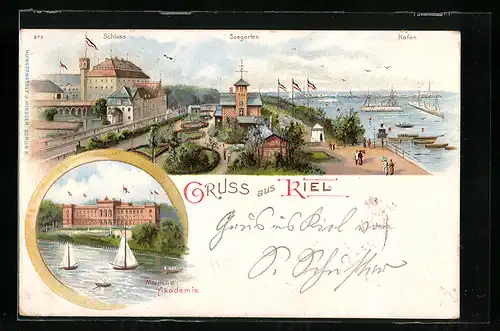 273
Schloss
Seegarten
Hafen
GRUSS aus KIEL
Gruss aus Kiel von
S. Schuster
Marine-
Akademie